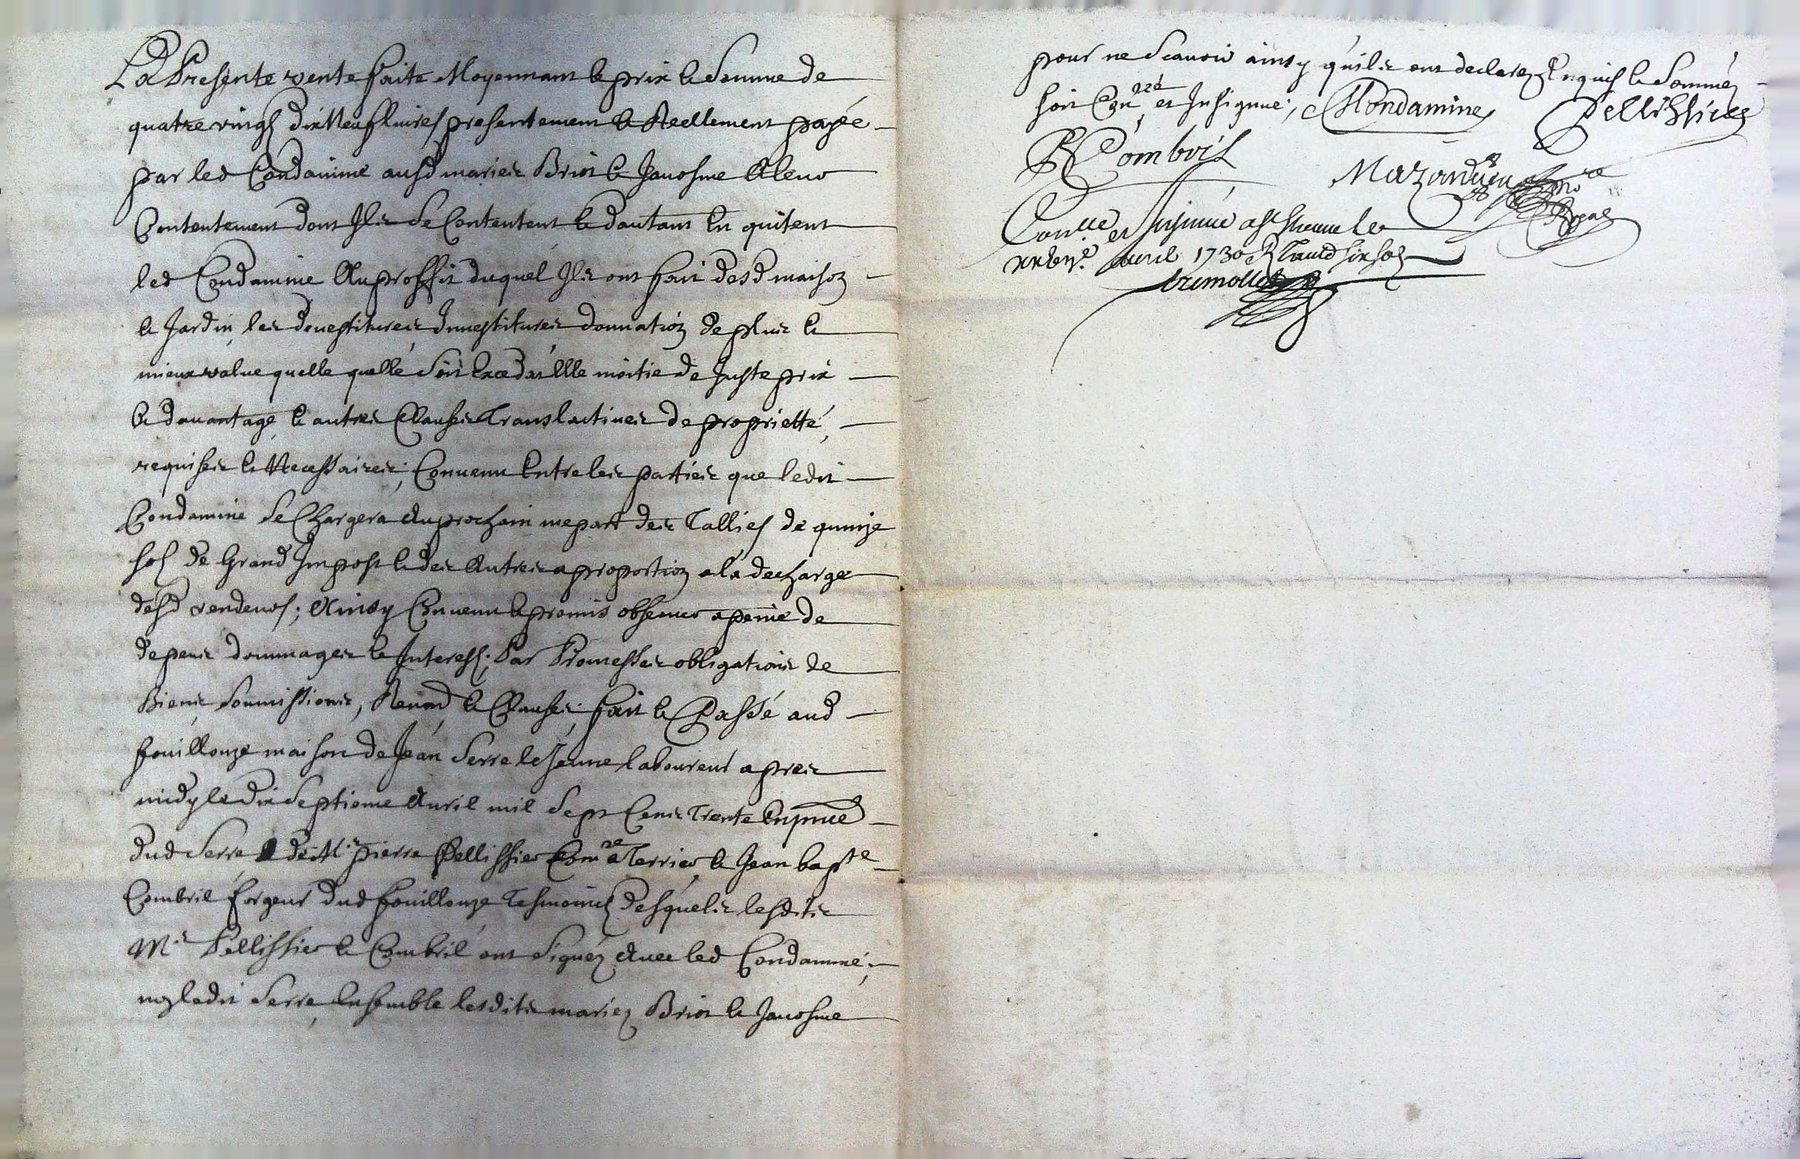 La Presente vente faite Moyennant le prix & Somme de
quatre vingt dix Neuf livres presentement & Reellement payée
par led Condamine ausd mariez Briot & Jacosme A leur
Contentement dont Ils Se Contentent & dautant En quitent
led Condamine Au proffit duquel Ils ont fait desd maison
& Jardin, les devestitures Investitures donnation de plus &
mieux value quelle quelle Soit Exceda't lle moitie de Juste prix
& davantage & autres Clauses Translactives de proprietté,
requises & Necessaires; Convenu Entre les parties que ledit
Condamine Se Chargera Au prochain mepart des Tallies de quinze
sols de Grand Impost & des Autres a proportion a la decharge
desd vendeurs; Ainsy Convenu & promis observer a peine de
depens dommages & Interests; Par Promesses obligations de
Biens Soumissions, Renon & Clauses; fait & Passé aud
fouillouze maison de Jean Serre le Jeune laboureur apres
midy le dix Septieme Avril mil Sept Cens Trente En pnce
dud Serre de Me pierre Pellissier Comre a Terrier & Jean bapte
Combril forgeur dud fouillouze Tesmoins desquels lesdits
Mr Pellissier & Combril ont Signéz Avec led Condamine;
non ledit Serre Ensemble lesdits mariez Briot & Jacosme
pour ne Scavoir ainsy quils ont declarez Enquis & Sommés
soit Con & Insignué; Condamine Pellissier
Combril Mazandieu
Con.lle et Insinué a St Etienne le
avril 1730 Six sols